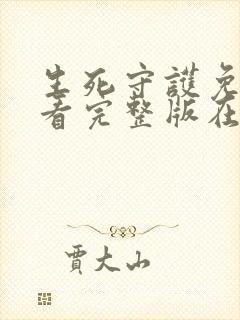 生死守護免
看完整版在
賈大山